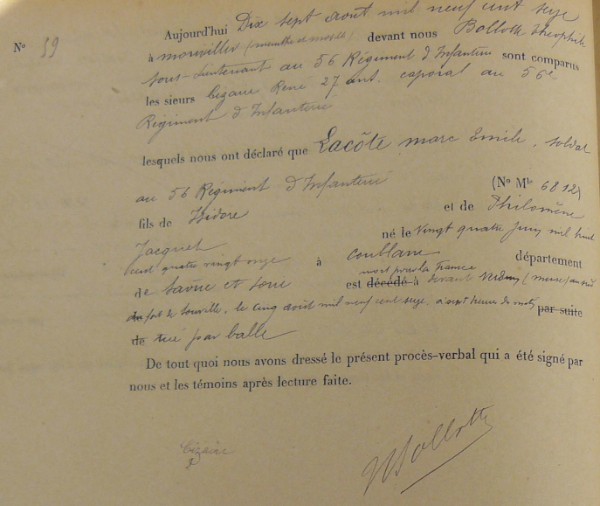 Aujourd'hui Dix sept août mil neuf cent seize
N° 59
à morviller (meurthe et moselle) devant nous Bollotte Théophile
sous-Lieutenant au 56 Régiment d'Infanterie sont comparus
les sieurs Cizaire René 27 ans. caporal au 56e
Régiment d'Infanterie
lesquels nous ont déclaré que Lacôte marc Emile. soldat
au 56 Régiment d'Infanterie (No Mle 6812)
fils de Isidore et de Philomène
Jacquet né le Vingt quatre juin mil huit
cent quatre vingt onze à coublanc département
de Saone et Loire mort pour la France
est décédé à devant Verdun (meuse) au sud
du fort de Souville, le cinq août mil neuf cent seize, à sept heures du matin par suite
de tué par balle
De tout quoi nous avons dressé le présent procès-verbal qui a été signé par
nous et les témoins après lecture faite.
Cizaire
Bollotte